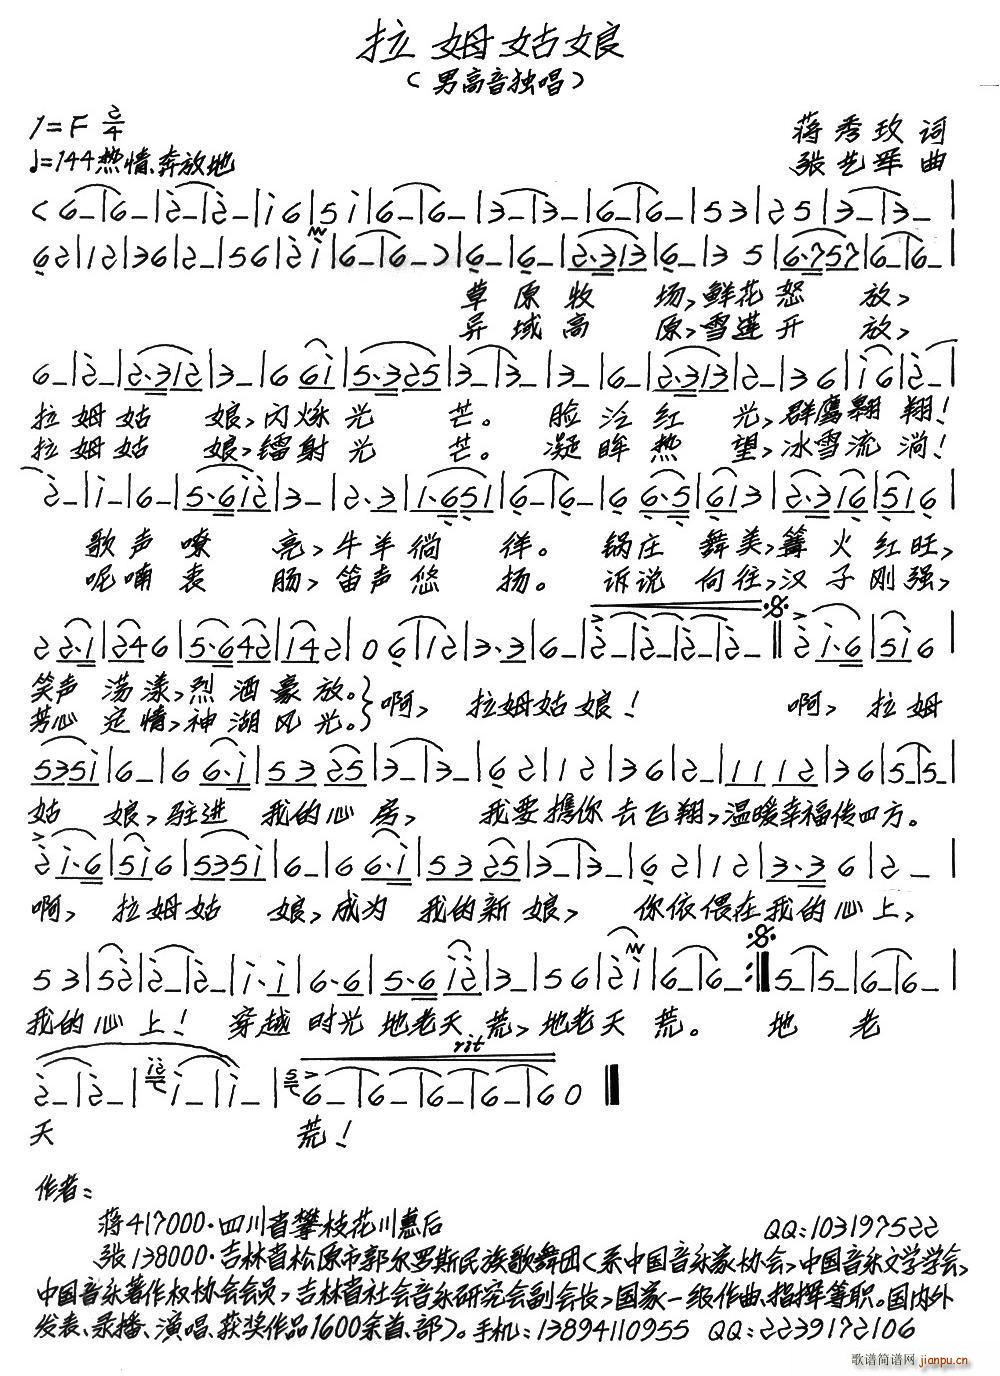 拉姆姑娘
(男高音独唱)
1=F 2/4
蒋秀玫 词
♩=144 热情、奔放地
张艺军 曲
草原牧场,鲜花怒放,
异域高原,雪莲开放,
拉姆姑娘,闪烁光芒。脸泛红光,群鹰翱翔!
拉姆姑娘,镭射光芒。凝眸热望,冰雪流淌!
歌声嘹亮,牛羊徜徉。锅庄舞美,篝火红旺,
呢喃衷肠,笛声悠扬。诉说向往,汉子刚强,
笑声荡漾,烈酒豪放。}啊,拉姆姑娘!啊,拉姆
芳心定情,神湖风光。
姑娘,驻进我的心房,我要携你去飞翔,温暖幸福传四方。
啊,拉姆姑娘,成为我的新娘,你依偎在我的心上,
我的心上!穿越时光地老天荒,地老天荒。地老
rit
天荒!
作者:
蒋417000·四川省攀枝花川惠后 QQ:103197522
张138000·吉林省松原市郭尔罗斯民族歌舞团(系中国音乐家协会,中国音乐文学学会,
中国音乐著作权协会会员,吉林省社会音乐研究会副会长,国家一级作曲、指挥等职。国内外
发表、录播、演唱、获奖作品1600余首、部)。手机:13894110955 QQ:2239172106
歌谱简谱网 jianpu.cn